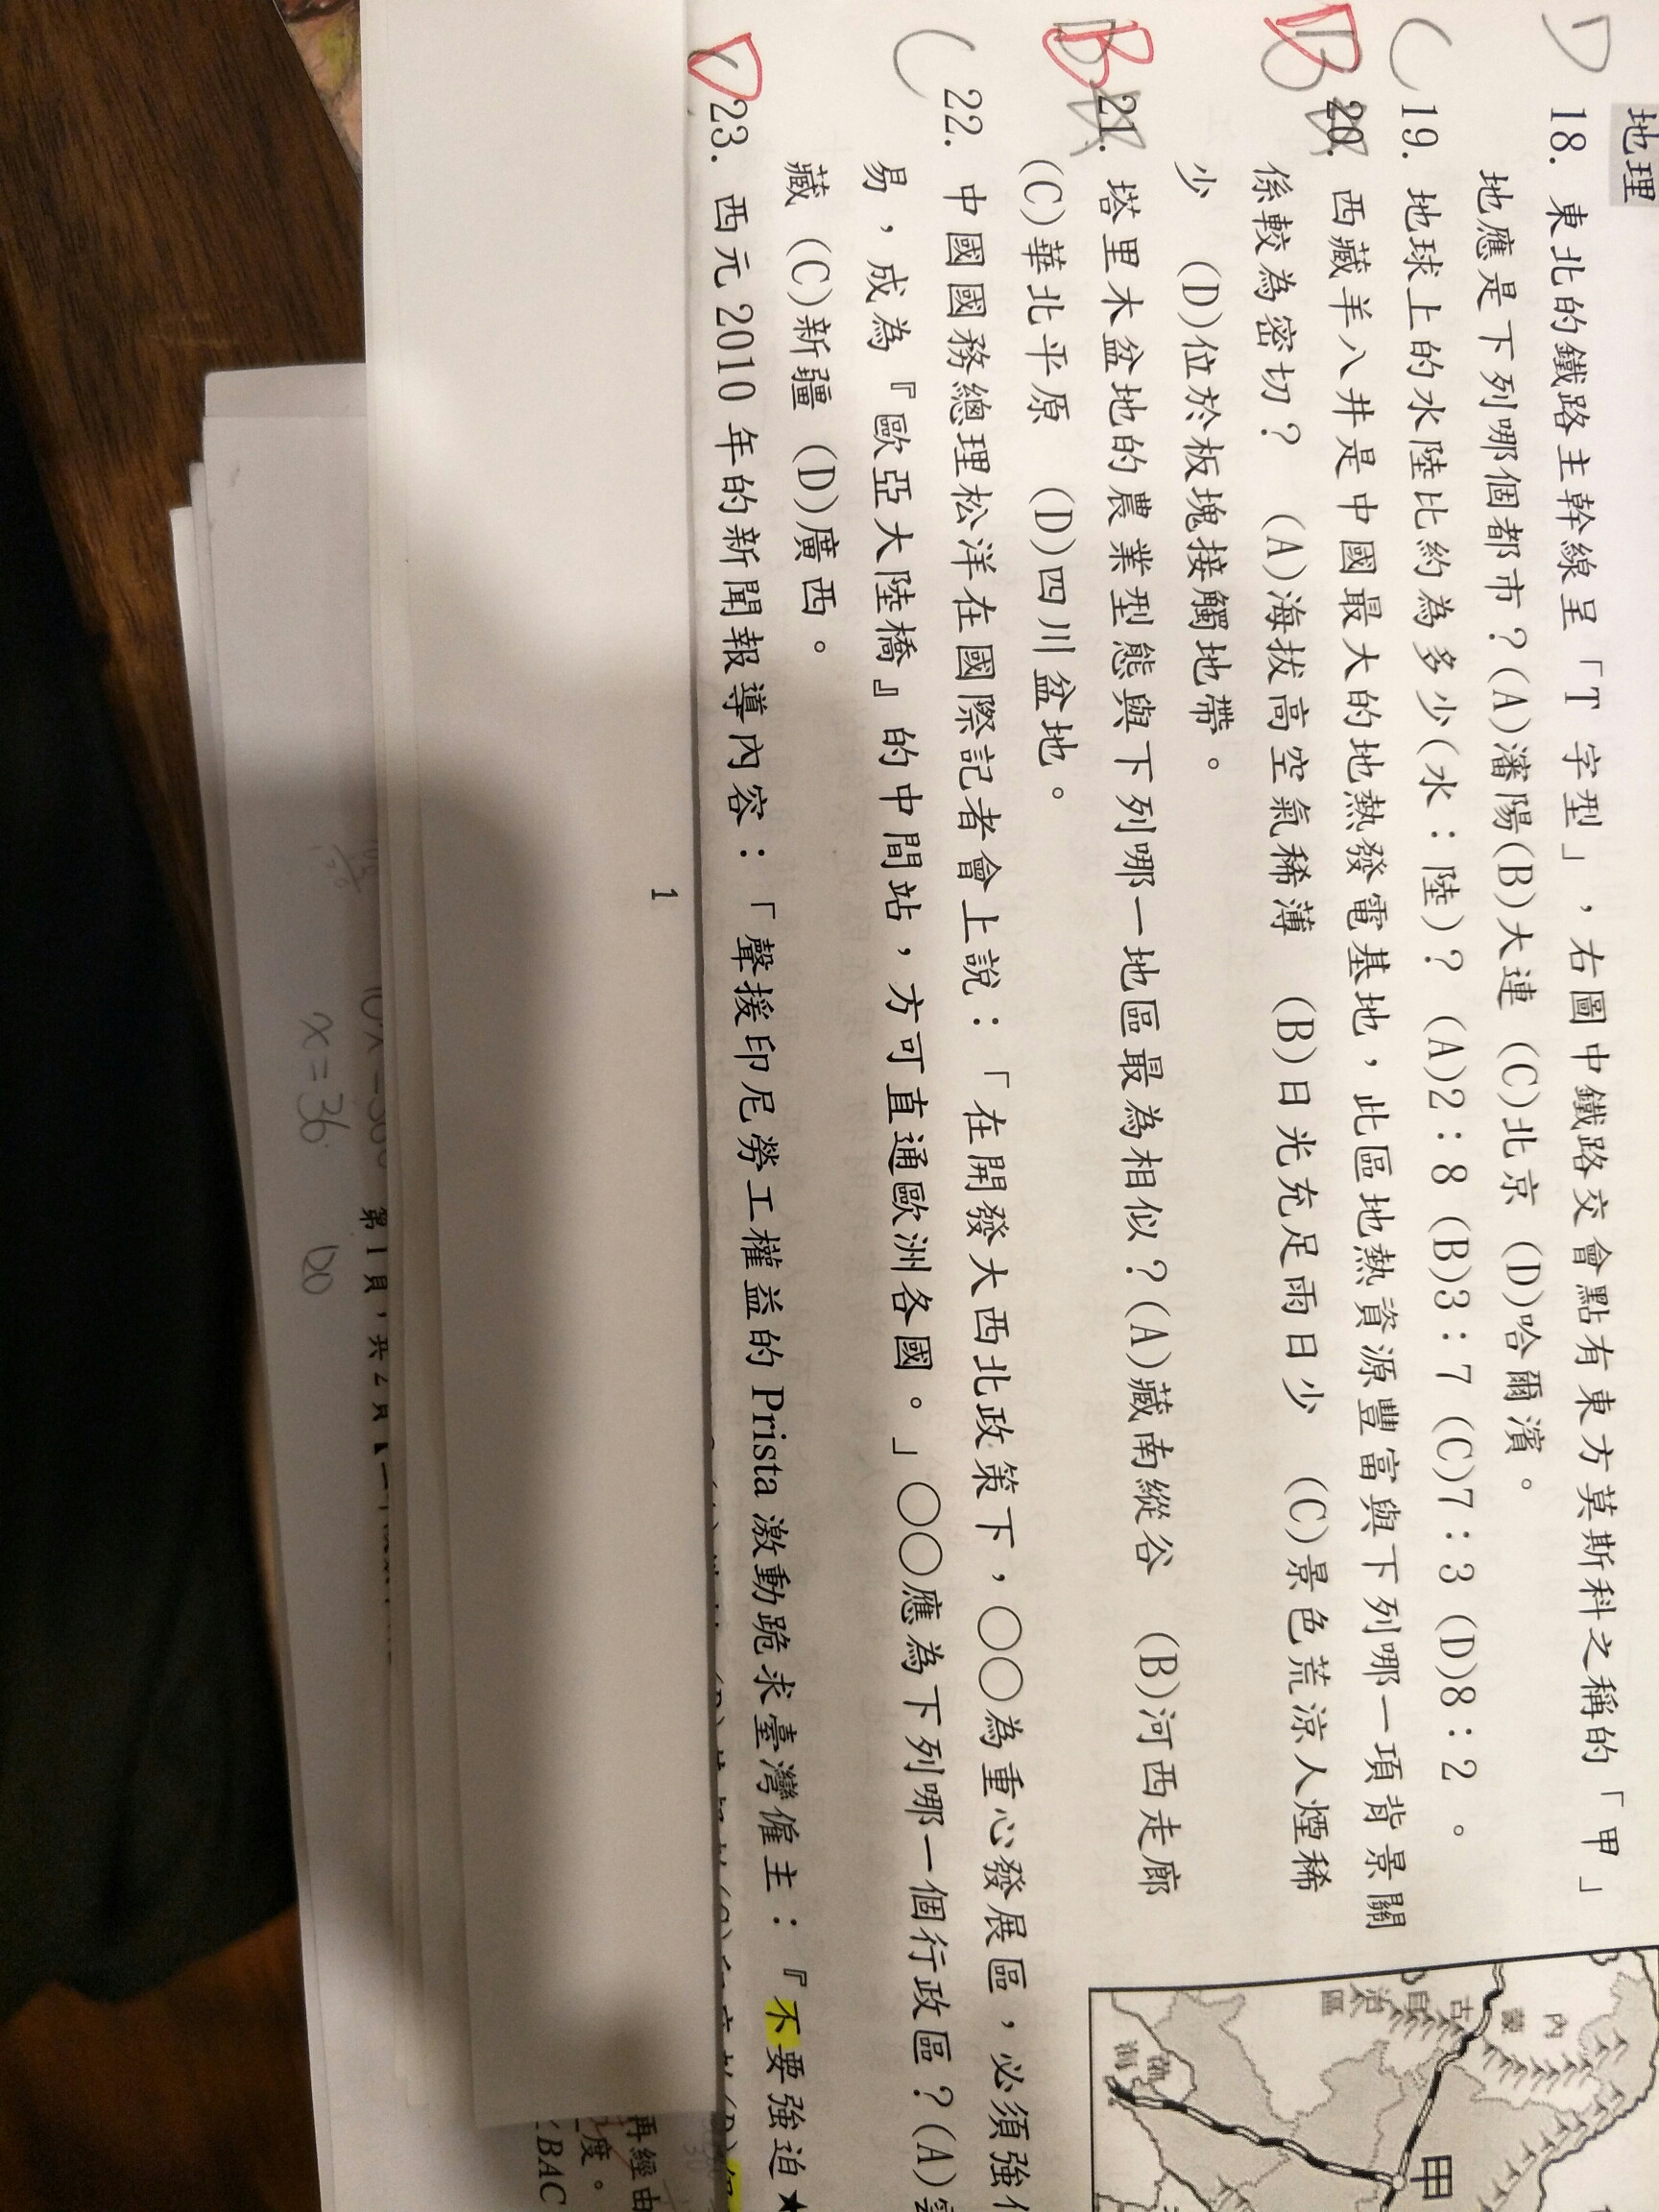 地理
D 18. 東北的鐵路主幹線呈「T 字型」，右圖中鐵路交會點有東方莫斯科之稱的「甲」
地應是下列哪個都市？(A)瀋陽(B)大連 (C)北京 (D)哈爾濱。
C 19. 地球上的水陸比約為多少(水：陸)？(A)2：8 (B)3：7 (C)7：3 (D)8：2 。
D 20. 西藏羊八井是中國最大的地熱發電基地，此區地熱資源豐富與下列哪一項背景關
係較為密切？ (A)海拔高空氣稀薄 (B)日光充足雨日少 (C)景色荒涼人煙稀
少 (D)位於板塊接觸地帶。
B 21. 塔里木盆地的農業型態與下列哪一地區最為相似？(A)藏南縱谷 (B)河西走廊
(C)華北平原 (D)四川盆地。
C 22. 中國國務總理松洋在國際記者會上說：「在開發大西北政策下，○○為重心發展區，必須強
易，成為『歐亞大陸橋』的中間站，方可直通歐洲各國。」○○應為下列哪一個行政區？(A)
藏 (C)新疆 (D)廣西。
D 23. 西元 2010 年的新聞報導內容：「聲援印尼勞工權益的 Prista 激動跪求臺灣僱主：『不要強迫★
內蒙古自治區
渤海
甲
1
再經由
度。
BAC
第 1 頁，共 2 頁
x=36
120